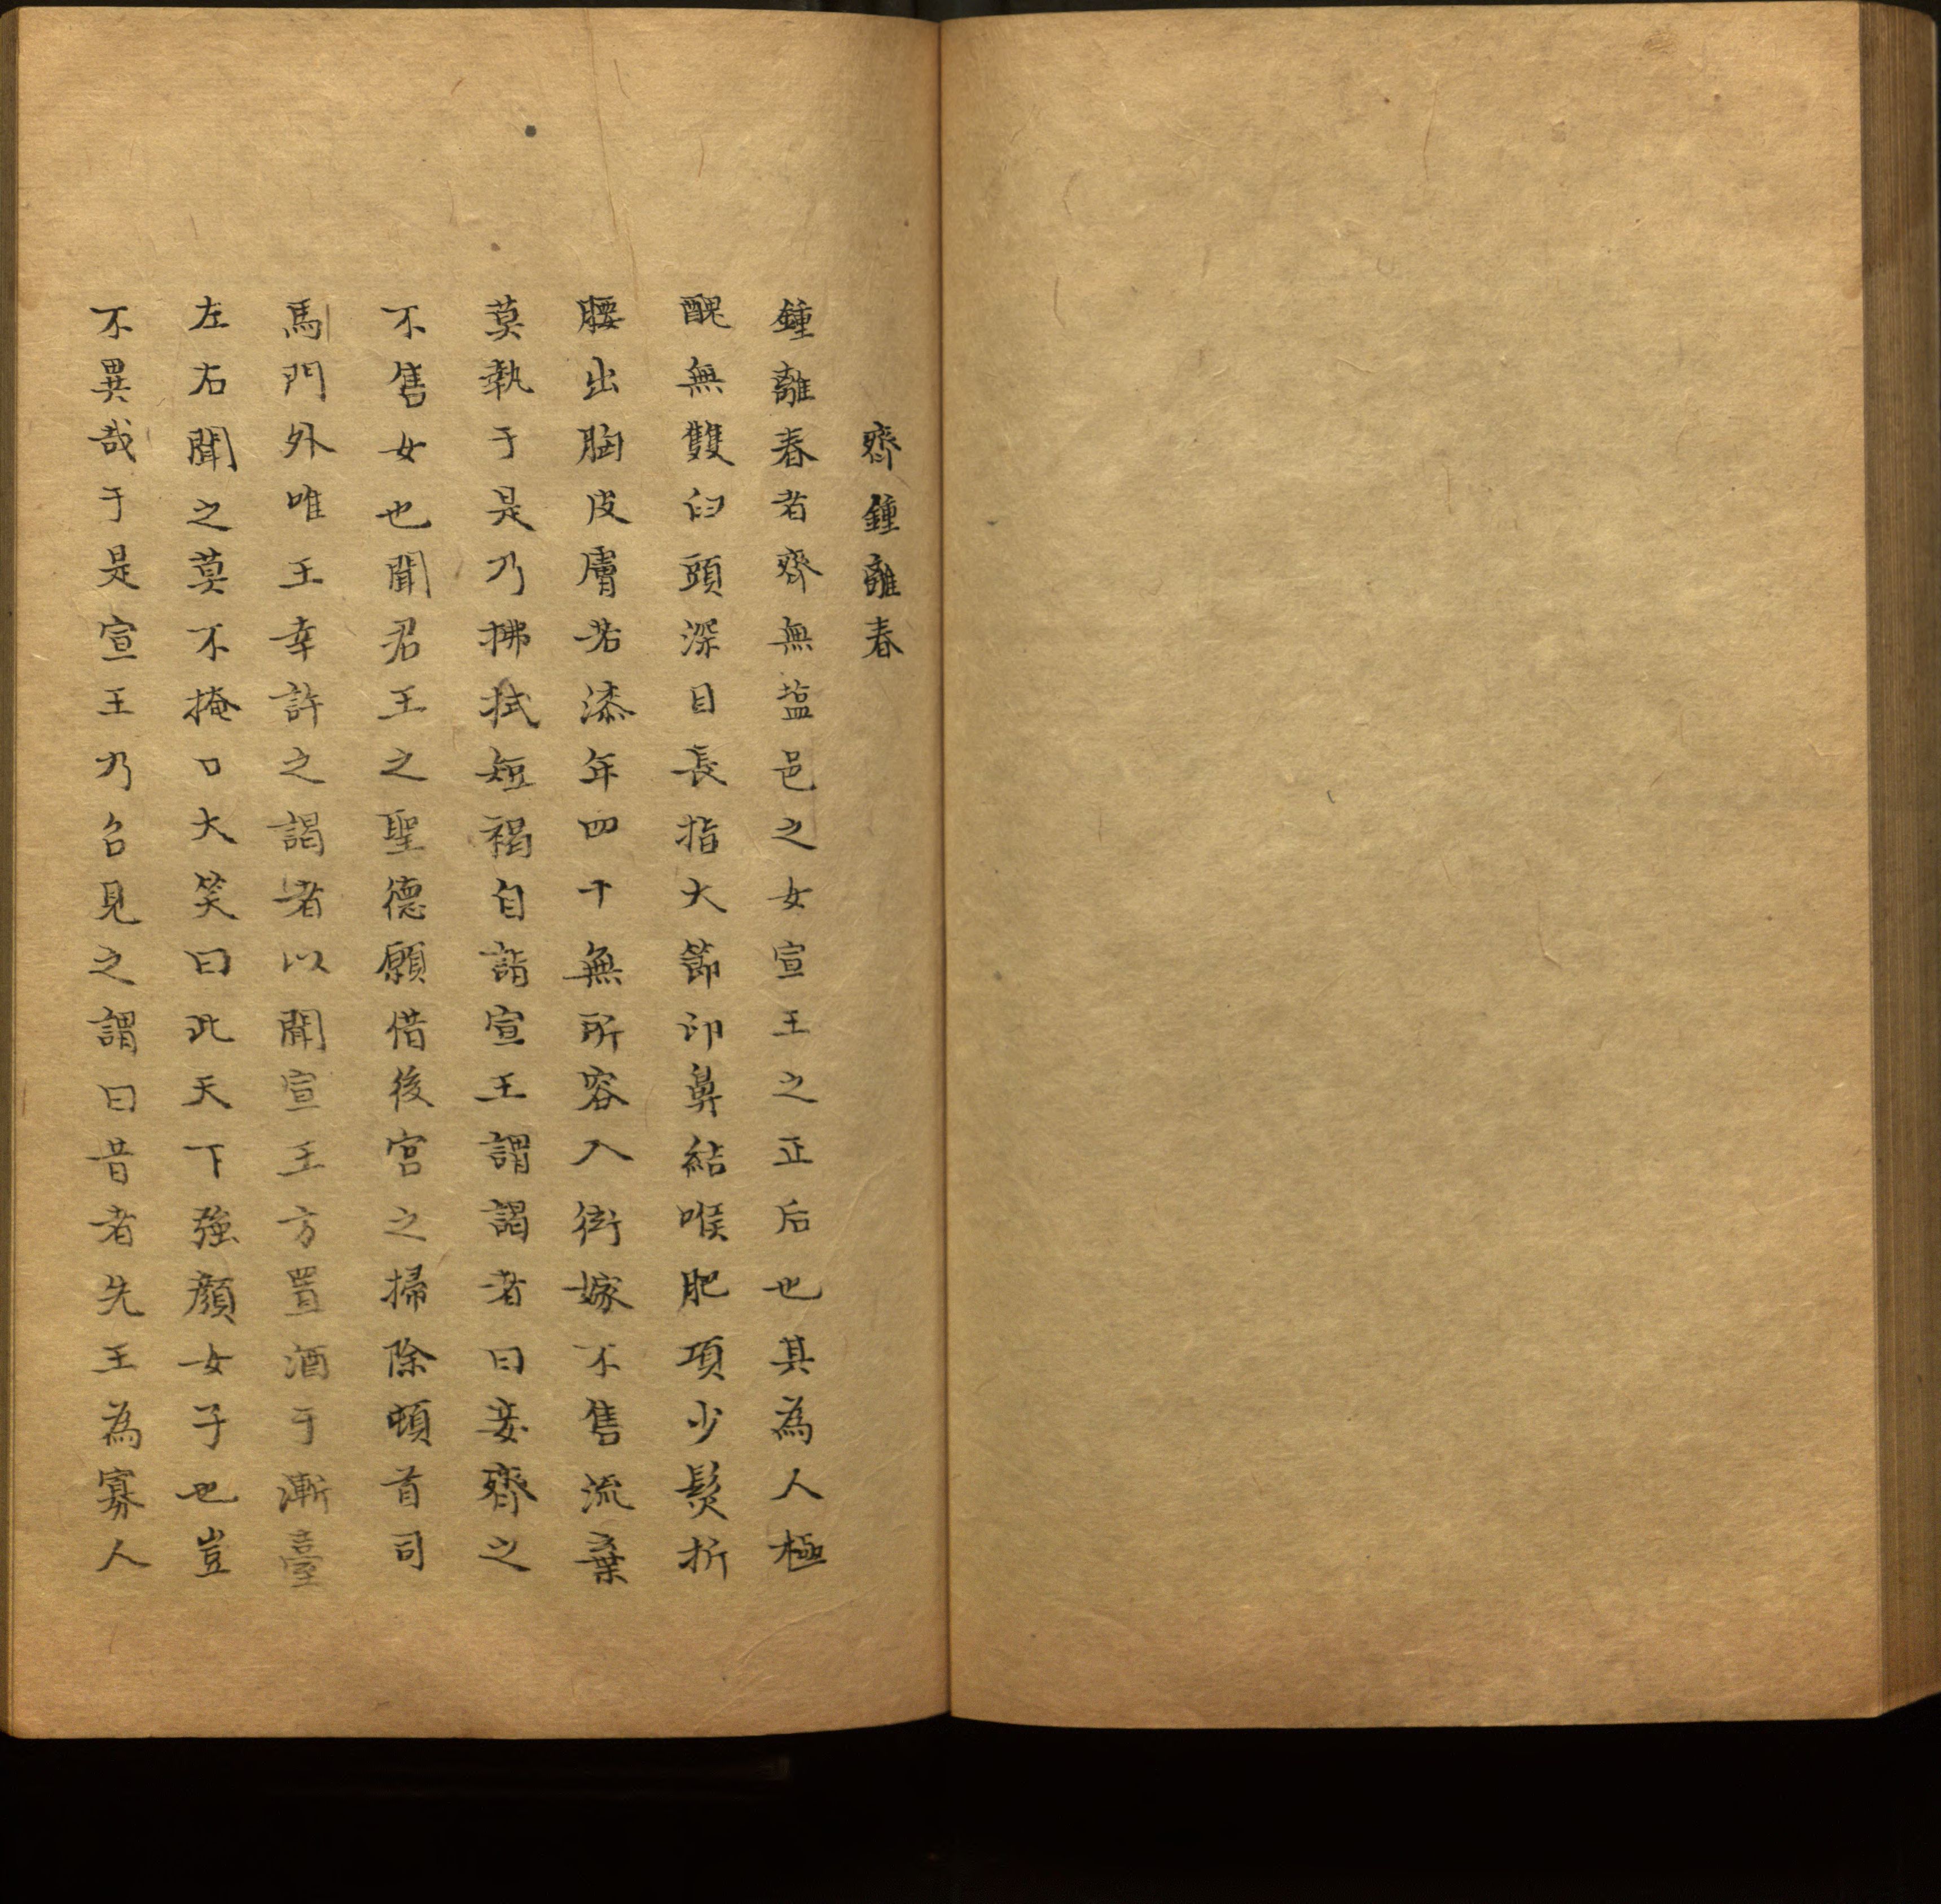 齊鍾離春
鍾離春者齊無塩邑之女宣王之正后也其為人極
醜無雙臼頭深目長指大節卬鼻結喉肥項少髮折
腰出胸皮膚若漆年四十無所容入衒嫁不售流棄
莫執于是乃拂拭短褐自詣宣王謂謁者曰妾齊之
不售女也聞君王之聖德願借後宮之掃除頓首司
馬門外唯王幸許之謁者以聞宣王方置酒于漸臺
左右聞之莫不掩口大笑曰此天下強顏女子也豈
不異哉于是宣王乃召見之謂曰昔者先王為寡人